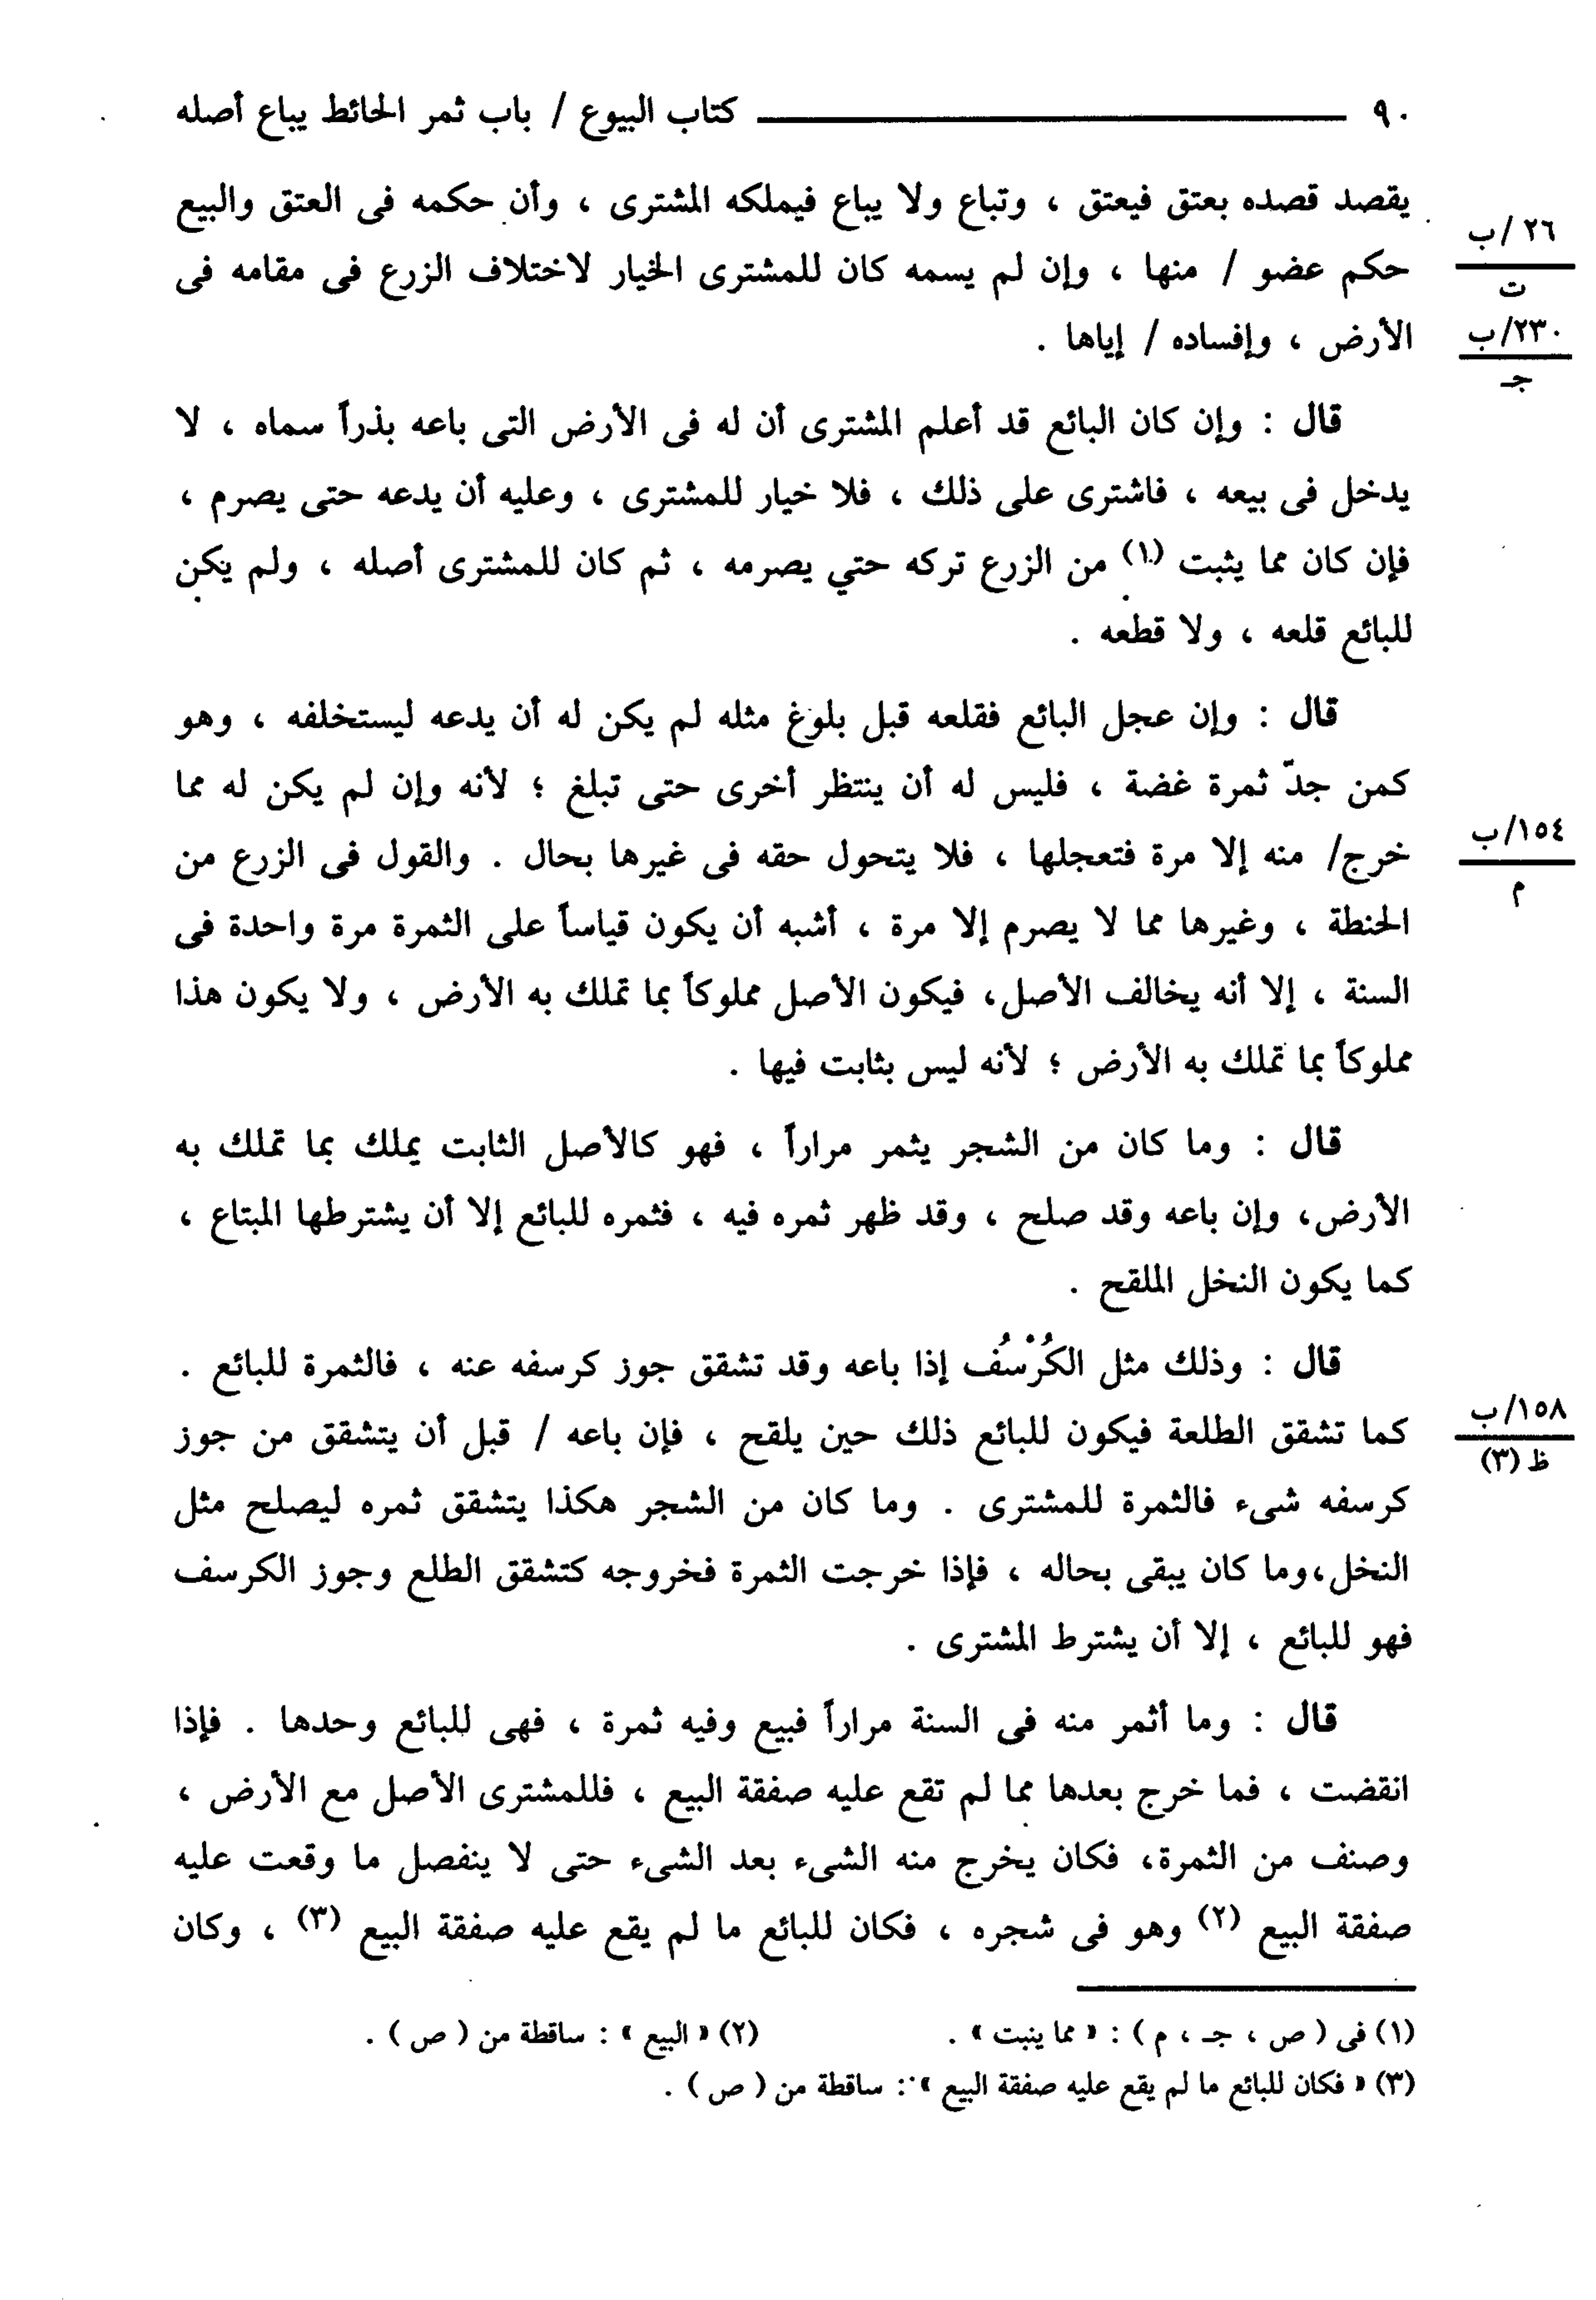 ٩٠ كتاب البيوع / باب ثمر الحائط يباع أصله
يقصد قصده بعتق فيعتق ، وتباع ولا يباع فيملكه المشترى ، وأن حكمه فى العتق والبيع
٢٦/ب
حكم عضو / منها ، وإن لم يسمه كان للمشترى الخيار لاختلاف الزرع فى مقامه فى
ت
الأرض ، وإفساده / إياها .
٢٣٠/ب
جـ
قال : وإن كان البائع قد أعلم المشترى أن له فى الأرض التى باعه بذراً سماه ، لا
يدخل فى بيعه ، فاشترى على ذلك ، فلا خيار للمشترى ، وعليه أن يدعه حتى يصرم ،
فإن كان مما يثبت (١) من الزرع تركه حتي يصرمه ، ثم كان للمشترى أصله ، ولم يكن
للبائع قلعه ، ولا قطعه .
قال : وإن عجل البائع فقلعه قبل بلوغ مثله لم يكن له أن يدعه ليستخلفه ، وهو
كمن جدّ ثمرة غضة ، فليس له أن ينتظر أخرى حتى تبلغ ؛ لأنه وإن لم يكن له مما
خرج/ منه إلا مرة فتعجلها ، فلا يتحول حقه فى غيرها بحال . والقول فى الزرع من
١٥٤/ب
م
الحنطة ، وغيرها مما لا يصرم إلا مرة ، أشبه أن يكون قياساً على الثمرة مرة واحدة فى
السنة ، إلا أنه يخالف الأصل، فيكون الأصل مملوكاً بما تملك به الأرض ، ولا يكون هذا
مملوكاً بما تملك به الأرض ؛ لأنه ليس بثابت فيها .
قال : وما كان من الشجر يثمر مراراً ، فهو كالأصل الثابت يملك بما تملك به
الأرض، وإن باعه وقد صلح ، وقد ظهر ثمره فيه ، فثمره للبائع إلا أن يشترطها المبتاع ،
كما يكون النخل الملقح .
قال : وذلك مثل الكُرْسُف إذا باعه وقد تشقق جوز كرسفه عنه ، فالثمرة للبائع .
كما تشقق الطلعة فيكون للبائع ذلك حين يلقح ، فإن باعه / قبل أن يتشقق من جوز
١٥٨/ب
ظ (٣)
كرسفه شىء فالثمرة للمشترى . وما كان من الشجر هكذا يتشقق ثمره ليصلح مثل
النخل،وما كان يبقى بحاله ، فإذا خرجت الثمرة فخروجه كتشقق الطلع وجوز الكرسف
فهو للبائع ، إلا أن يشترط المشترى .
قال : وما أثمر منه فى السنة مراراً فبيع وفيه ثمرة ، فهى للبائع وحدها . فإذا
انقضت ، فما خرج بعدها مما لم تقع عليه صفقة البيع ، فللمشترى الأصل مع الأرض ،
وصنف من الثمرة، فكان يخرج منه الشىء بعد الشىء حتى لا ينفصل ما وقعت عليه
صفقة البيع (٢) وهو فى شجره ، فكان للبائع ما لم يقع عليه صفقة البيع (٣) ، وكان
(١) فى ( ص ، جـ ، م ) : « مما ينبت » . (٢) « البيع » : ساقطة من ( ص ) .
(٣) « فكان للبائع ما لم يقع عليه صفقة البيع » : ساقطة من ( ص ) .